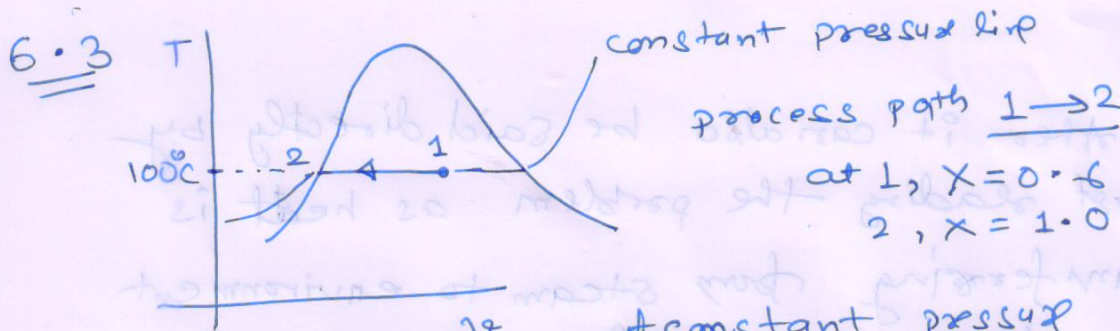 6.3 T constant pressure line
process path 1 → 2
100°C 2 1 at 1, x = 0.6
2, x = 1.0
constant pressure